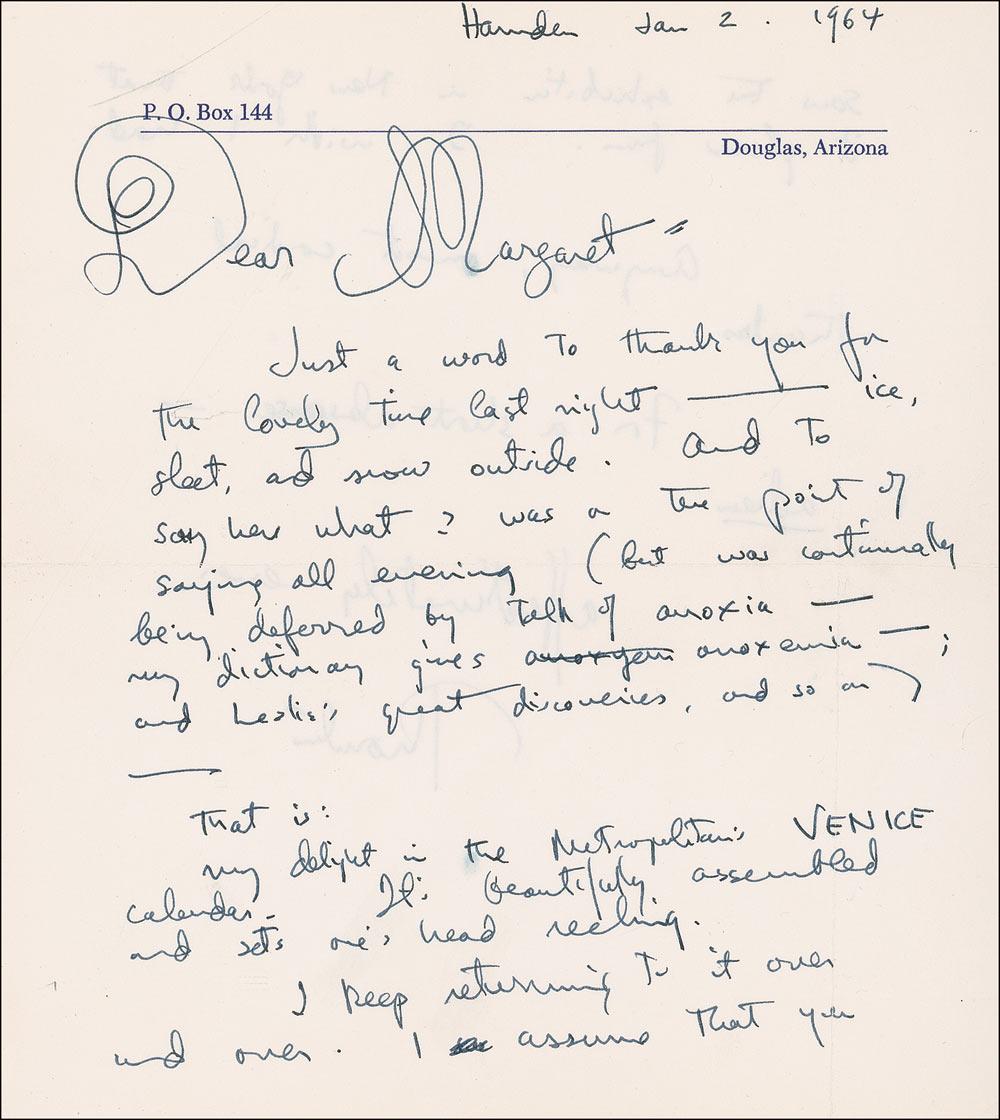 Hamden Jan 2 . 1964
P. O. Box 144
Douglas, Arizona
Dear Margaret =
Just a word to thank you for
the lovely time last night —— ice,
sleet, and snow outside. And to
say here what I was on the point of
saying all evening (but was continually
being deferred by talk of anoxia —
my dictionary gives anoxyem anoxemia — ;
and Leslie's great discoveries, and so on)
—
That is:
my delight in the Metropolitan's VENICE
calendar. It's beautifully assembled
and sets one's head reeling.
I keep returning to it over
and over. I assume that you